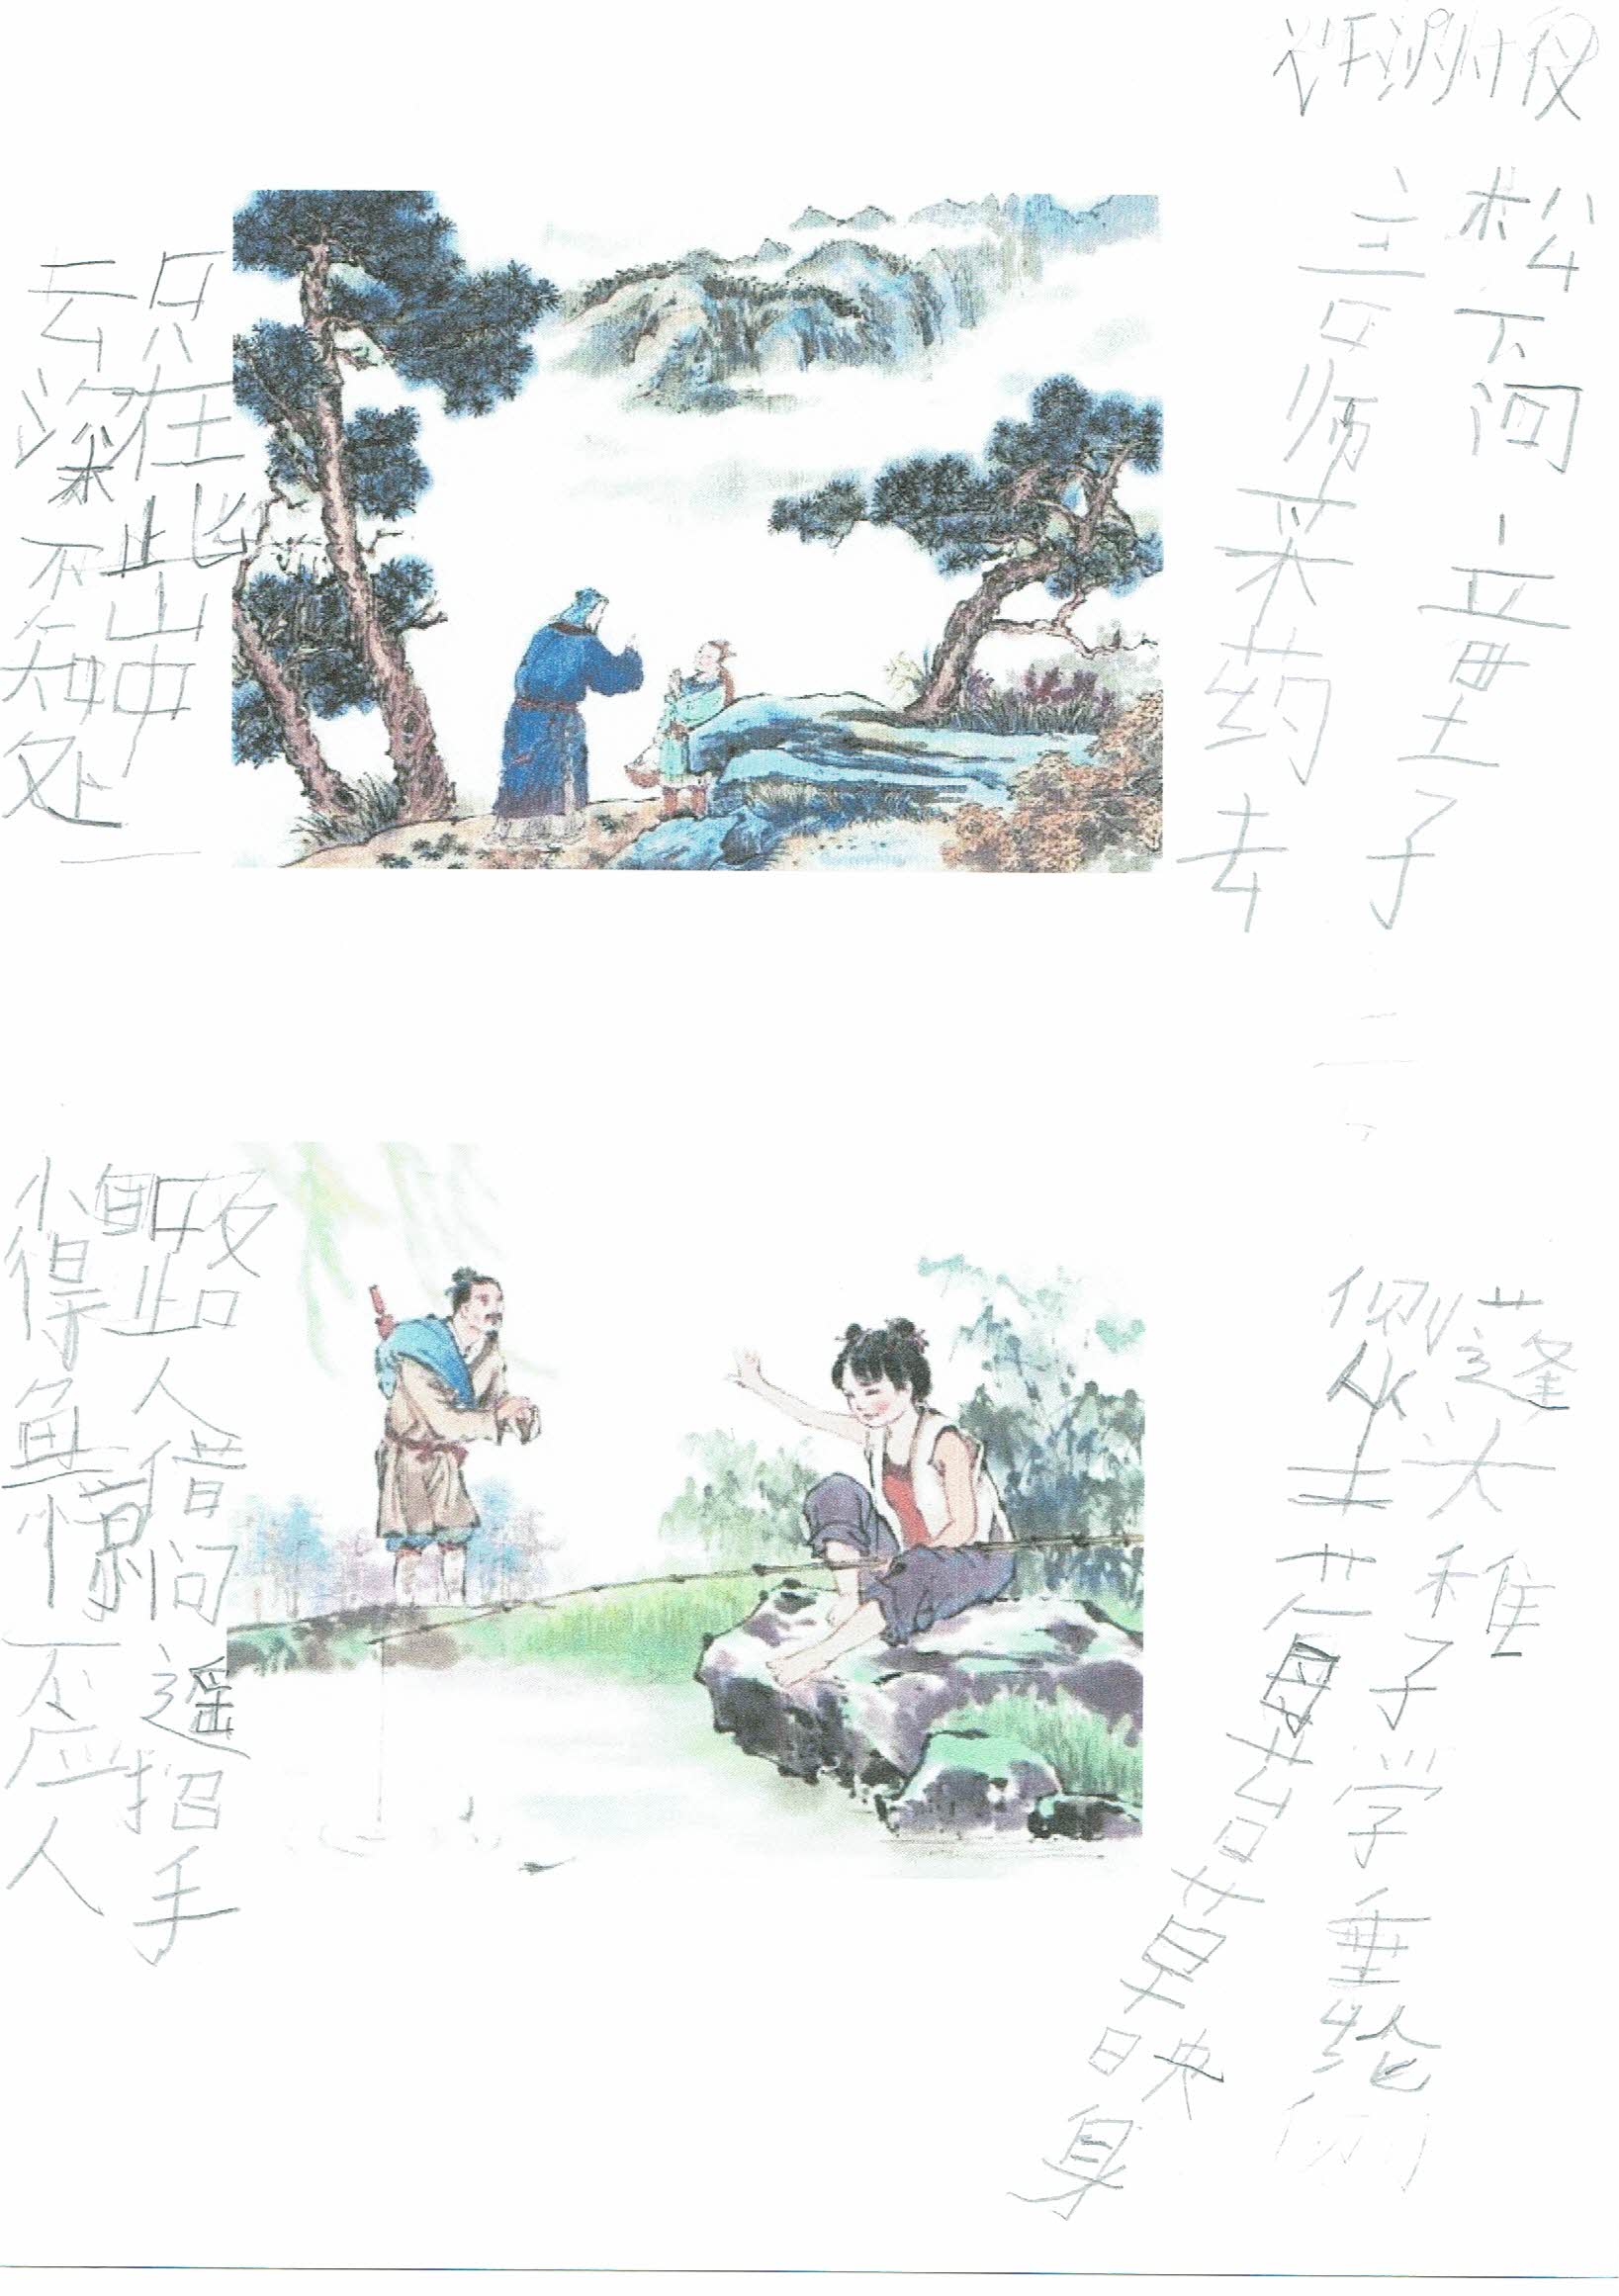 松下问童子
言师采药去
只在此山中
云深不知处
蓬头稚子学垂纶
侧坐莓苔草映身
路人借问遥招手
怕得鱼惊不应人